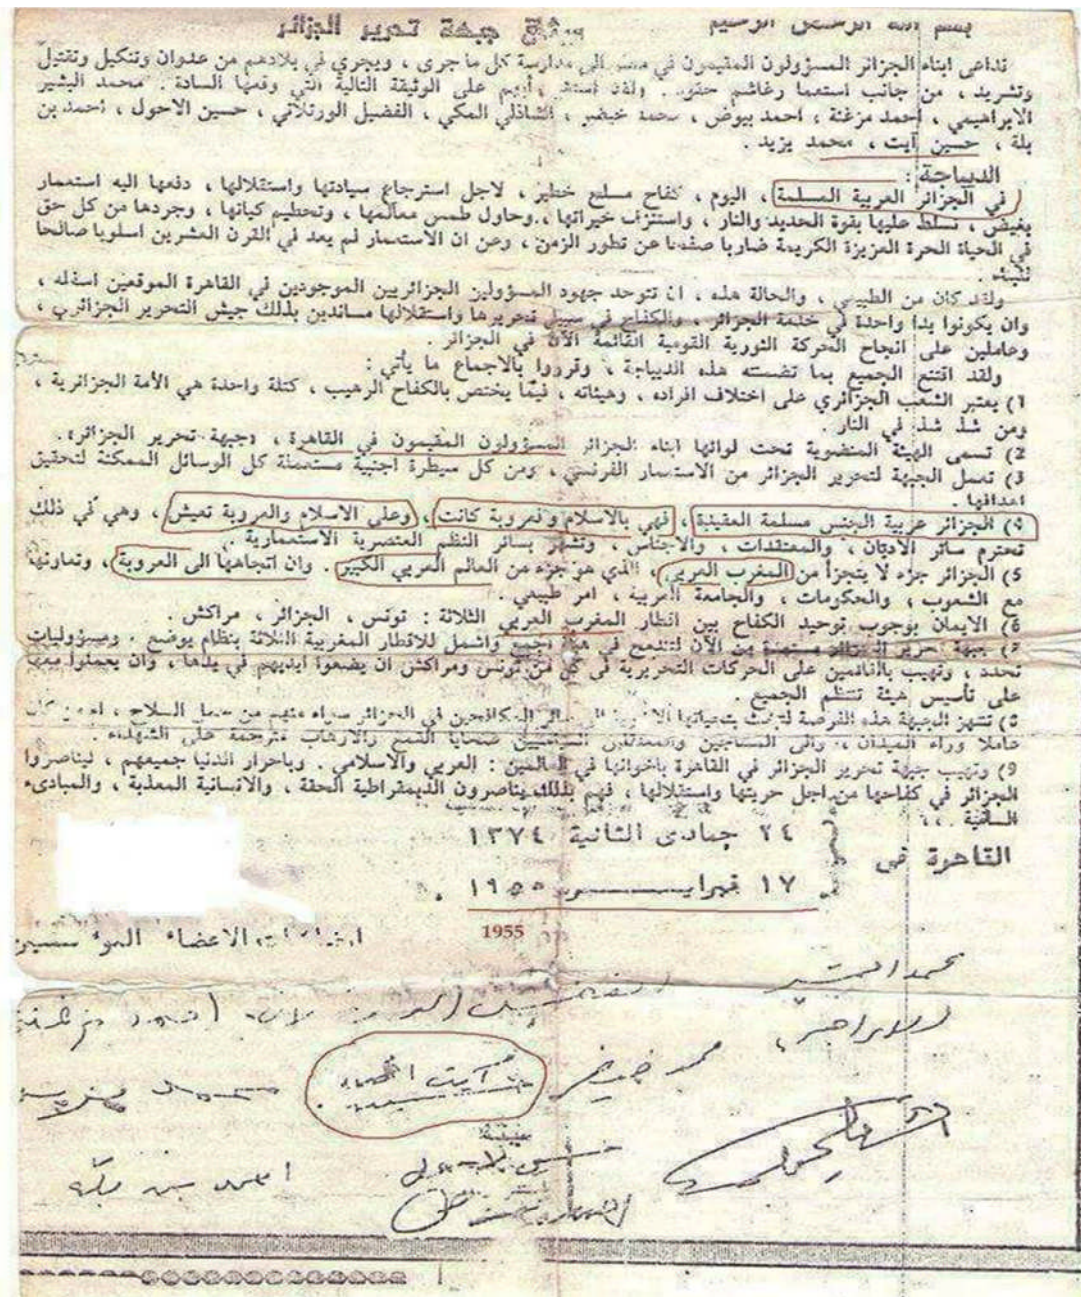 بسم الله الرحمن الرحيم
ميثاق جبهة تحرير الجزائر
تداعى ابناء الجزائر المسؤولون المقيمون في مصر الى مدارسة كل ما جرى ، ويجري في بلادهم من عدوان وتنكيل وتقتيل
وتشريد ، من جانب استعمار غاشم حقود . ولقد استقر رأيهم على الوثيقة التالية التي وقعها السادة . محمد البشير
الابراهيمي ، احمد مزغنة ، احمد بيوض ، محمد خيضر ، الشاذلي المكي ، الفضيل الورتلاني ، حسين الاحول ، احمد بن
بلة ، حسين آيت ، محمد يزيد .
الديباجة :
في الجزائر العربية المسلمة ، اليوم ، كفاح مسلح خطير ، لاجل استرجاع سيادتها واستقلالها ، دفعها اليه استعمار
بغيض ، تسلط عليها بقوة الحديد والنار ، واستنزف خيراتها ، وحاول طمس معالمها ، وتحطيم كيانها ، وجردها من كل حق
في الحياة الحرة العزيزة الكريمة ضاربا صفحا عن تطور الزمن ، وعن ان الاستعمار لم يعد في القرن العشرين اسلوبا صالحا
للبقاء .
ولقد كان من الطبيعي ، والحالة هذه ، ان تتوحد جهود المسؤولين الجزائريين الموجودين في القاهرة الموقعين اسفله ،
وان يكونوا يدا واحدة في خدمة الجزائر ، والكفاح في سبيل تحريرها واستقلالها مساندين بذلك جيش التحرير الجزائري ،
وعاملين على انجاح الحركة الثورية القومية القائمة الآن في الجزائر .
ولقد اقتنع الجميع بما تضمنته هذه الديباجة ، وقرروا بالاجماع ما يأتي :
1) يعتبر الشعب الجزائري على اختلاف افراده ، وهيئاته ، فيما يختص بالكفاح الرهيب ، كتلة واحدة هي الأمة الجزائرية ،
ومن شذ شذ في النار .
2) تسمى الهيئة المنضوية تحت لوائها ابناء الجزائر المسؤولون المقيمون في القاهرة ، «جبهة تحرير الجزائر» .
3) تعمل الجبهة لتحرير الجزائر من الاستعمار الفرنسي ، ومن كل سيطرة اجنبية مستعملة كل الوسائل الممكنة لتحقيق
اهدافها .
4) الجزائر عربية الجنس مسلمة العقيدة ، فهي بالاسلام والعروبة كانت ، وعلى الاسلام والعروبة تعيش ، وهي في ذلك
تحترم سائر الاديان ، والمعتقدات ، والاجناس ، وتشهر بسائر النظم العنصرية الاستعمارية .
5) الجزائر جزء لا يتجزأ من المغرب العربي ، الذي هو جزء من العالم العربي الكبير . وان اتجاهها الى العروبة ، وتعاونها
مع الشعوب ، والحكومات ، والجامعة العربية ، امر طبيعي .
6) الايمان بوجوب توحيد الكفاح بين اقطار المغرب العربي الثلاثة : تونس ، الجزائر ، مراكش .
7) جبهة تحرير الجزائر مستعدة من الآن لتندمج في هيئة اجمع واشمل للاقطار المغربية الثلاثة بنظام يوضع . ومسؤوليات
تحدد ، وتهيب بالقائمين على الحركات التحريرية في كل من تونس ومراكش ان يضعوا ايديهم في يدها ، وان يعملوا معها
على تأسيس هيئة تنتظم الجميع .
8) تنتهز الجبهة هذه الفرصة لتبعث بتحياتها الاخوية الى سائر المكافحين في الجزائر سواء منهم من حمل السلاح ، او من كان
عاملا وراء الميدان ، والى المساجين والمعتقلين السياسيين ضحايا القمع والارهاب مترحمة على الشهداء .
9) وتهيب جبهة تحرير الجزائر في القاهرة باخوانها في العالمين : العربي والاسلامي . وباحرار الدنيا جميعهم ، ليناصروا
الجزائر في كفاحها من اجل حريتها واستقلالها ، فهم بذلك يناصرون الديمقراطية الحقة ، والانسانية المعذبة ، والمبادىء
السامية .
القاهرة في
٢٤ جمادى الثانية ١٣٧٤
١٧ فبراير ١٩٥٥ .
1955
امضاءات الاعضاء المؤسسين
محمد البشير
الابراهيمي
الفضيل الورتلاني
احمد مزغنة
محمد خيضر
آيت احمد
حسين
محمد يزيد
الشاذلي المكي
حسين الاحول
احمد بن بلة